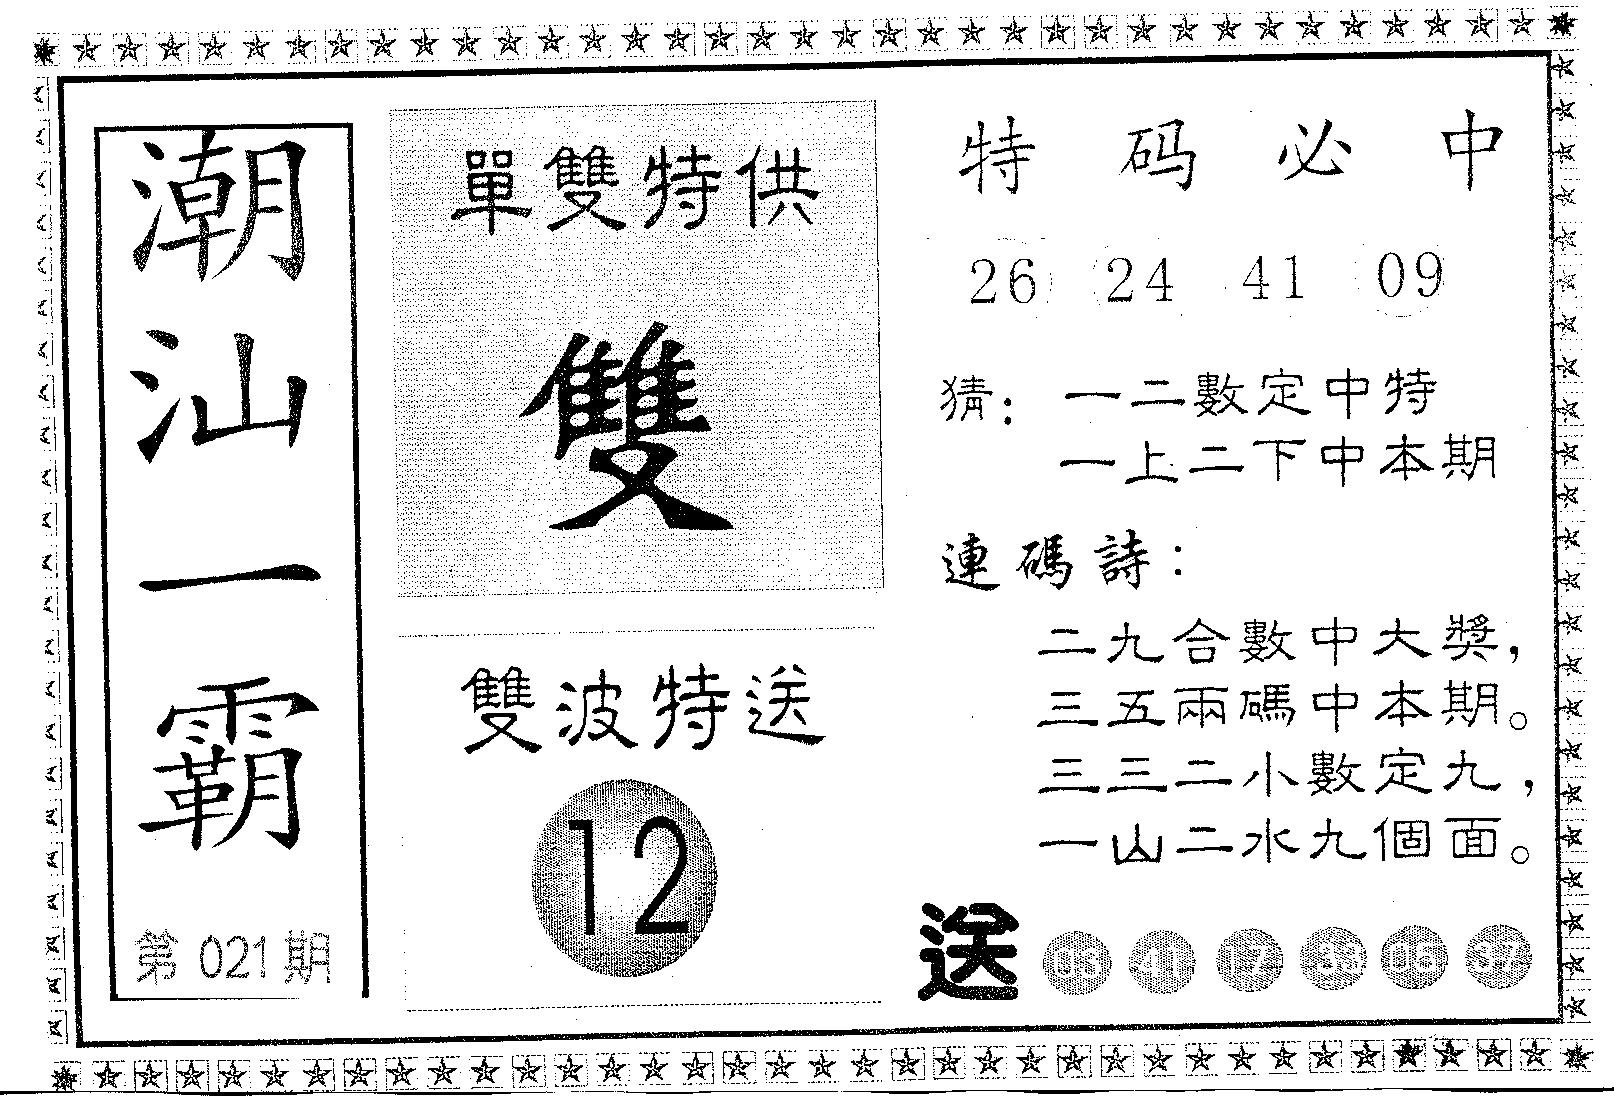 潮汕一霸
第021期
單雙特供
雙
雙波特送
12
特码必中
26 24 41 09
猜：一二數定中特
一上二下中本期
連碼詩：
二九合數中大獎，
三五兩碼中本期。
三三二小數定九，
一山二水九個面。
送 03 41 17 33 06 37